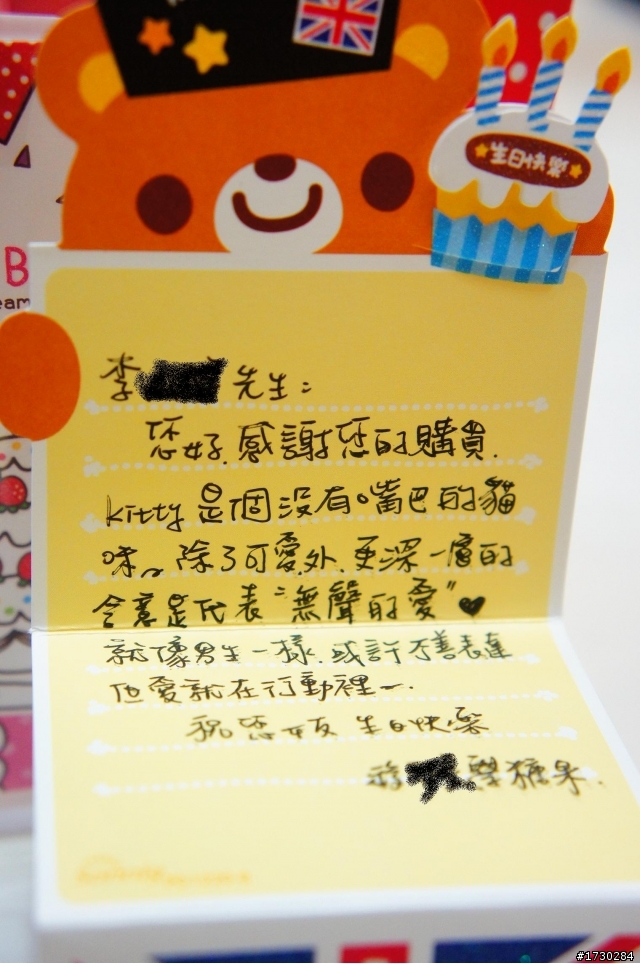 生日快樂
B
eam
李 先生：
您好.感謝您的購買.
kitty是個沒有嘴巴的貓
咪~除了可愛外.更深一層的
含意是代表“無聲的愛”♥
就像男生一樣.或許不善表達
但愛就在行動裡~.
祝您女友 生日快樂
糖果.
#1730284